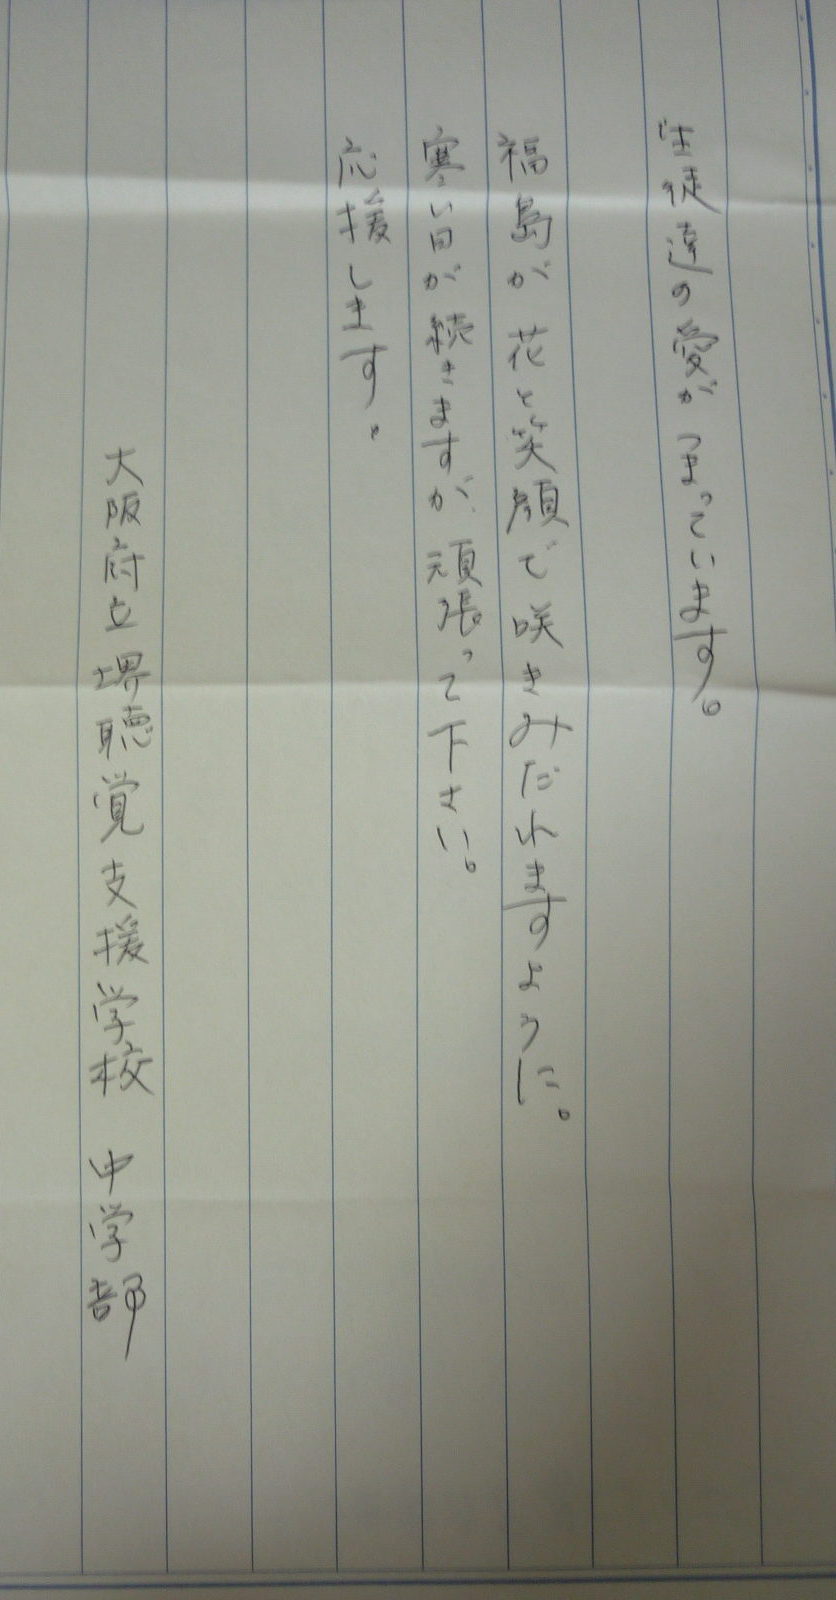 生徒達の愛がつまっています。
福島が花と笑顔で咲きみだれますように。
寒い日が続きますが、頑張って下さい。
応援します。
大阪府立堺聴覚支援学校 中学部